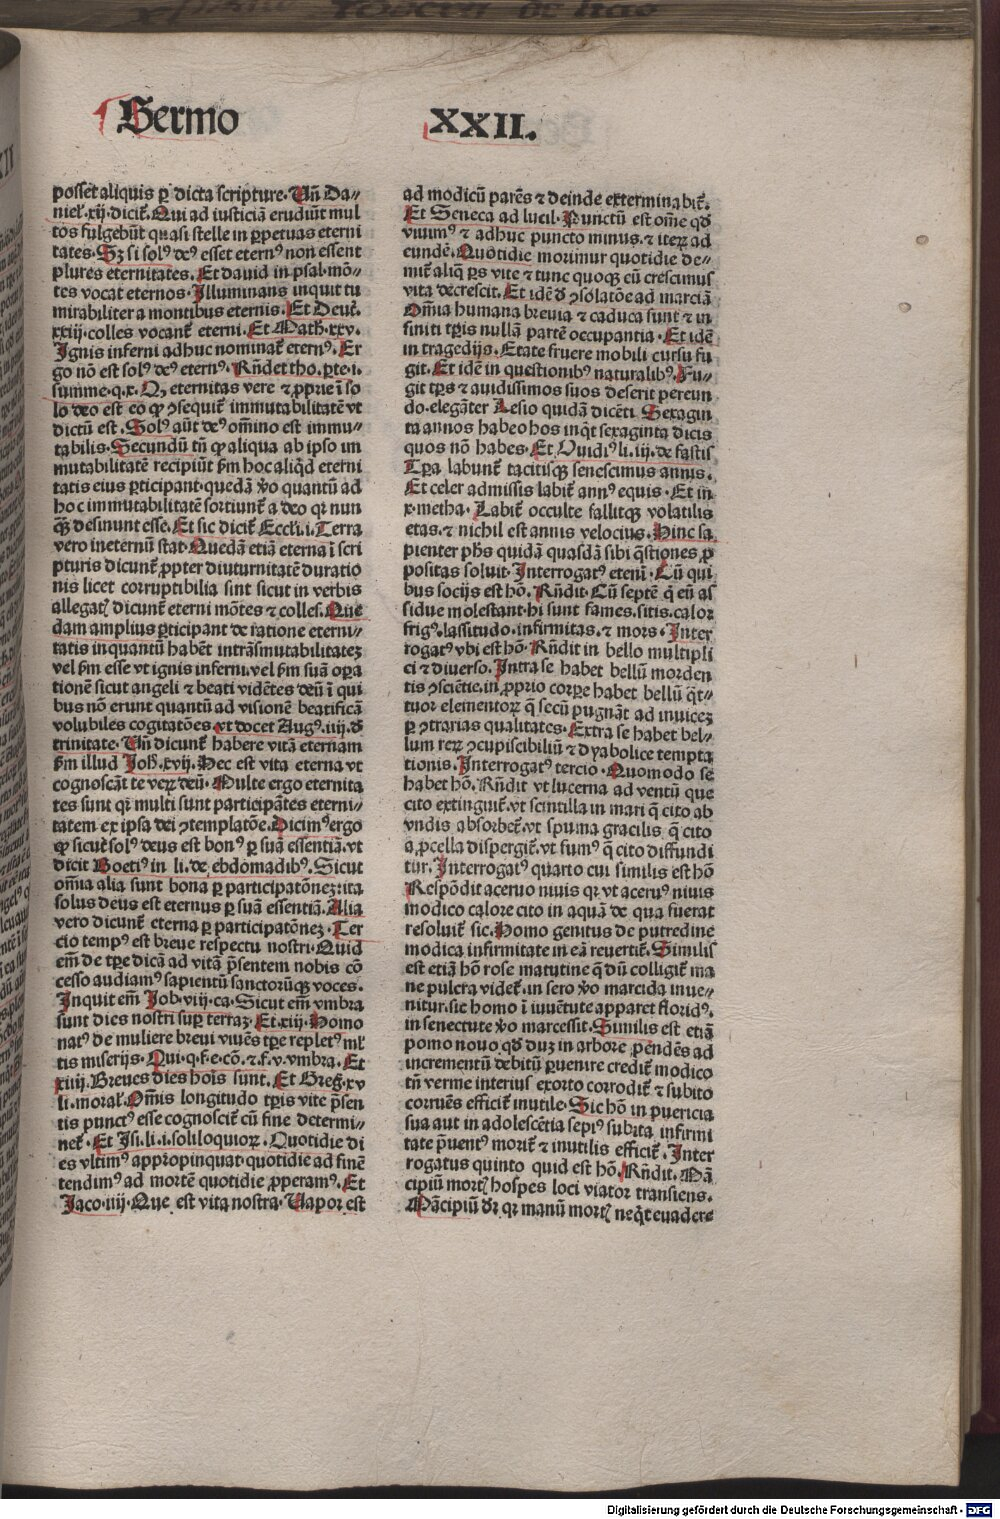 Sermo XXII.
posset aliquis ꝑ dicta scripture. Vñ Da⸗
niel̕. xij. dicit̃. Qui ad iusticiã erudiũt mul
tos fulgebũt quasi stelle in ꝑpetuas eterni
tates. Sꝫ si solꝰ deꝰ esset eternꝰ non essent
plures eternitates. Et dauid in psal. mõ⸗
tes vocat eternos. Illuminans inquit tu
mirabiliter a montibus eternis. Et Deut̃.
xxiij. colles vocant̃ eterni. Et Math̃. xxv.
Ignis inferni adhuc nominat̃ eternꝰ. Er
go nõ est solꝰ deꝰ eternꝰ. Rñdet tho. ꝑte. i.
summe. q. x. Qꝫ eternitas vere ⁊ ꝓprie ĩ so
lo deo est eo ꝙ ꝯsequit̃ immutabilitatẽ vt
dictũ est. Solꝰ aũt deꝰ om̃ino est immu⸗
tabilis. Secundũ tñ ꝙ aliqua ab ipso im
mutabilitatẽ recipiũt ẜm hoc aliq̃d eterni
tatis eius ꝑticipant. quedã ꝟo quantũ ad
hoc immutabilitatẽ sortiunt̃ a deo qꝛ nun
qꝫ̃ desinunt esse. Et sic dicit̃ Eccl̕i. i. Terra
vero ineternũ stat. Quedã etiã eterna ĩ scri
pturis dicunt̃ ꝓpter diuturnitatẽ duratio
nis licet corruptibilia sint sicut in verbis
allegatꝭ dicunt̃ eterni mõtes ⁊ colles. Que
dam amplius ꝑticipant de ratione eterni⸗
tatis inquantũ habẽt intrãsmutabilitatez
vel ẜm esse vt ignis inferni. vel ẜm suã oꝑa
tionẽ sicut angeli ⁊ beati vidẽtes deũ ĩ qui
bus nõ erunt quantũ ad visionẽ beatificã
volubiles cogitatões vt docet Augꝰ. iiij. đ
trinitate. Vñ dicunt̃ habere vitã eternam
ẜm illud Joh̃. xvij. Hec est vita eterna vt
cognoscãt te veꝝ deũ. Multe ergo eternita
tes sunt qꝛ multi sunt participãtes eterni⸗
tatem ex ipsa dei ꝯtemplatõe. Dicimꝰ ergo
ꝙ sicut̃ solꝰ deus est bonꝰ ꝑ suã essentiã. vt
dicit Boetiꝰ in li. de ebdomadibꝰ. Sicut
om̃ia alia sunt bona ꝑ participatõnez: ita
solus deus est eternus ꝑ suã essentiã. Alia
vero dicunt̃ eterna ꝑ participatõnez. Ter
cio tempꝰ est breue respectu nostri. Quid
em̃ de tꝑe dicã ad vitã p̃sentem nobis cõ
cesso audiamꝰ sapientũ sanctorũqꝫ voces.
Inquit em̃ Job. viij. ca. Sicut em̃ vmbra
sunt dies nostri suꝑ terraz. Et. xiij. Homo
natꝰ de muliere breui viuẽs tꝑe repletꝰ ml̕
tis miserijs. Qui. q. f. e. cõ. ⁊. f. v. vmbra. Et
xiiij. Breues dies hoĩs sunt. Et Greg̃. xv
li. moral̕. Om̃is longitudo tꝑis vite p̃sen
tis punctꝰ esse cognoscit̃ cũ fine determi⸗
net̃. Et Isi. li. i. soliloquioꝝ. Quotidie di
es vltimꝰ appropinquat. quotidie ad finẽ
tendimꝰ ad mortẽ quotidie ꝓperamꝰ. Et
Jaco. iiij. Que est vita nostra. Vapor est
ad modicũ parẽs ⁊ deinde exterminabit̃.
Et Seneca ad lucil. Punctũ est om̃e qđ
viuimꝰ ⁊ adhuc puncto minus. ⁊ iteꝝ ad
eundẽ. Quotidie morimur quotidie de⸗
mit̃ aliq̃ ꝑs vite ⁊ tunc quoqꝫ cũ crescimus
vita decrescit. Et idẽ đ ꝯsolatõe ad marciã
Om̃ia humana breuia ⁊ caduca sunt ⁊ in
finiti tꝑis nullã partẽ occupantia. Et idẽ
in tragedijs. Etate fruere mobili cursu fu
git. Et idẽ in questionibꝰ naturalibꝰ. Fu⸗
git tꝑs ⁊ auidissimos suos deserit pereun
do. elegãter Lesio quidã dicẽti. Sexagin
ta annos habeo hos inq̃t sexaginta dicis
quos nõ habes. Et Ouidiꝰ li. iij. de fastis
Tꝑa labunt̃ tacitisqꝫ senescimus annis.
Et celer admissis labit̃ annꝰ equis. Et in
x. metha. Labit̃ occulte fallitqꝫ volatilis
etas. ⁊ nichil est annis velocius. Hinc sa
pienter ph̃s quidã quasdã sibi q̃stiones ꝓ
positas soluit. Interrogatꝰ etenĩ. Cũ qui
bus socijs est hõ. Rñdit. Cũ septẽ q̃ eũ as
sidue molestant. hi sunt fames. sitis. calor
frigꝰ. lassitudo. infirmitas. ⁊ mors. Inter
rogatꝰ vbi est hõ. Rñdit in bello multipli
ci ⁊ diuerso. Intra se habet bellũ morden
tis ꝯsciẽtie. in ꝓprio corꝑe habet bellũ q̃t⸗
tuor elementoꝝ q̃ secũ pugnãt ad inuicez
ꝑ ꝯtrarias qualitates. Extra se habet bel⸗
lum reꝝ ꝯcupiscibiliũ ⁊ dyabolice tempta
tionis. Interrogatꝰ tercio. Quomodo se
habet hõ. Rñdit vt lucerna ad ventũ que
cito extinguit̃. vt scintilla in mari q̃ cito ab
vndis absorbet̃. vt spuma gracilis q̃ cito
a ꝓcella dispergit̃. vt fumꝰ q̃ cito diffundi
tur. Interrogatꝰ quarto cui similis est hõ
Respõdit aceruo niuis qꝛ vt aceruꝰ niuis
modico calore cito in aquã de qua fuerat
resoluit̃ sic. Homo genitus de putredine
modica infirmitate in eã reuertit̃. Similis
est etiã hõ rose matutine q̃ dũ colligit̃ ma
ne pulcra videt̃. in sero ꝟo marcida inue⸗
nitur. sic homo ĩ iuuẽtute apparet floridꝰ.
in senectute ꝟo marcessit. Similis est etiã
pomo nouo qđ duz in arbore pendẽs ad
incrementũ debitũ ꝑuenire credit̃ modico
tñ verme interius exorto corrodit̃ ⁊ subito
corruẽs efficit̃ inutile. Sic hõ in puericia
sua aut in adolescẽtia sepiꝰ subita infirmi
tate p̃uentꝰ morit̃ ⁊ inutilis efficit̃. Inter
rogatus quinto quid est hõ. Rñdit. Mã
cipiũ mortꝭ hospes loci viator transiens.
Mãcipiũ dꝛ qꝛ manũ mortꝭ neq̃t euadere
Digitalisierung gefördert durch die Deutsche Forschungsgemeinschaft - DFG